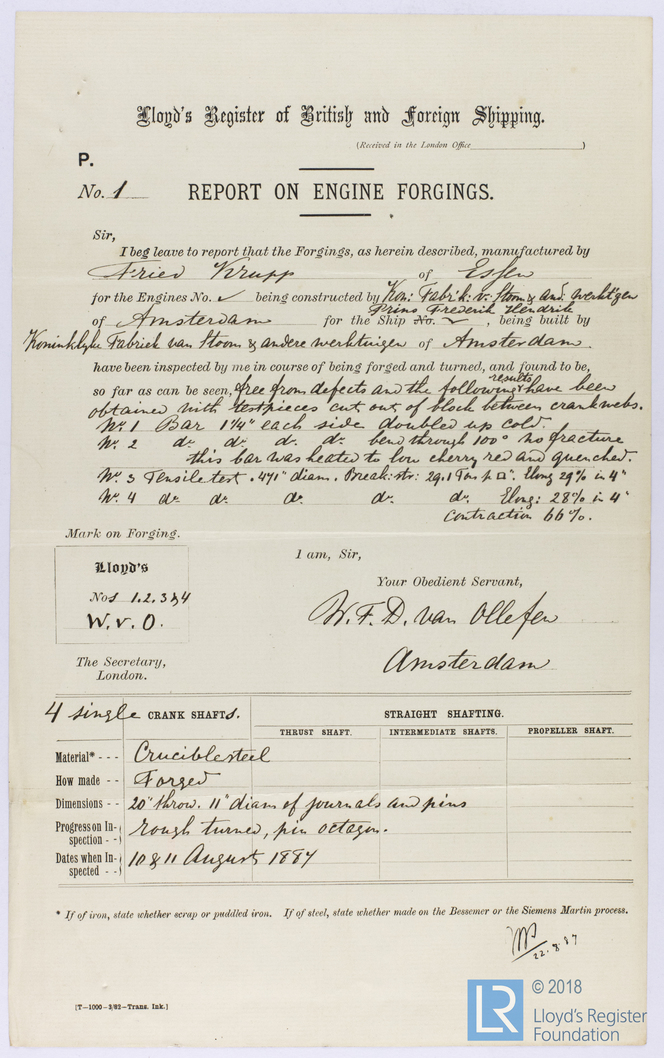 Lloyd's Register of British and Foreign Shipping.
(Received in the London Office )
P.
No. 1 REPORT ON ENGINE FORGINGS.
Sir,
I beg leave to report that the Forgings, as herein described, manufactured by
Fried Krupp of Essen
for the Engines No. ✓ being constructed by Kon: Fabrik: v. Stoom & and. werktigen
Prins Frederik Hendrik
of Amsterdam for the Ship No. ✓, being built by
Koninklyke Fabriek van Stoom & andere werktuigen of Amsterdam.
have been inspected by me in course of being forged and turned, and found to be,
results
so far as can be seen, free from defects and the following have been
obtained with testpieces cut out of block between crankwebs.
No. 1 Bar 1¼" each side doubled up cold.
No. 2 do. do. do. do. bend through 100° no fracture
this bar was heated to low cherry red and quenched.
No. 3 Tensile test .471" diam. Break: str: 29.1 Ton. p. □". Elong 29% in 4"
No. 4 do. do. do. do. do. Elong: 28% in 4"
Contraction 66%.
Mark on Forging.
Lloyd's
Nos 1.2.3 & 4
W. v. O.
I am, Sir,
Your Obedient Servant,
W. F. D. van Ollefen
Amsterdam
The Secretary,
London.
4 single CRANK SHAFTs. STRAIGHT SHAFTING.
THRUST SHAFT. INTERMEDIATE SHAFTS. PROPELLER SHAFT.
Material* - - - Cruciblesteel
How made - - Forged
Dimensions - - 20" throw. 11" diam of journals and pins
Progress on In-
spection - - rough turned, pin octagon.
Dates when In-
spected - - 10 & 11 August 1887
* If of iron, state whether scrap or puddled iron. If of steel, state whether made on the Bessemer or the Siemens Martin process.
22.8.87
[T—1000—3/82—Trans. Ink.]
LR © 2018
Lloyd's Register
Foundation